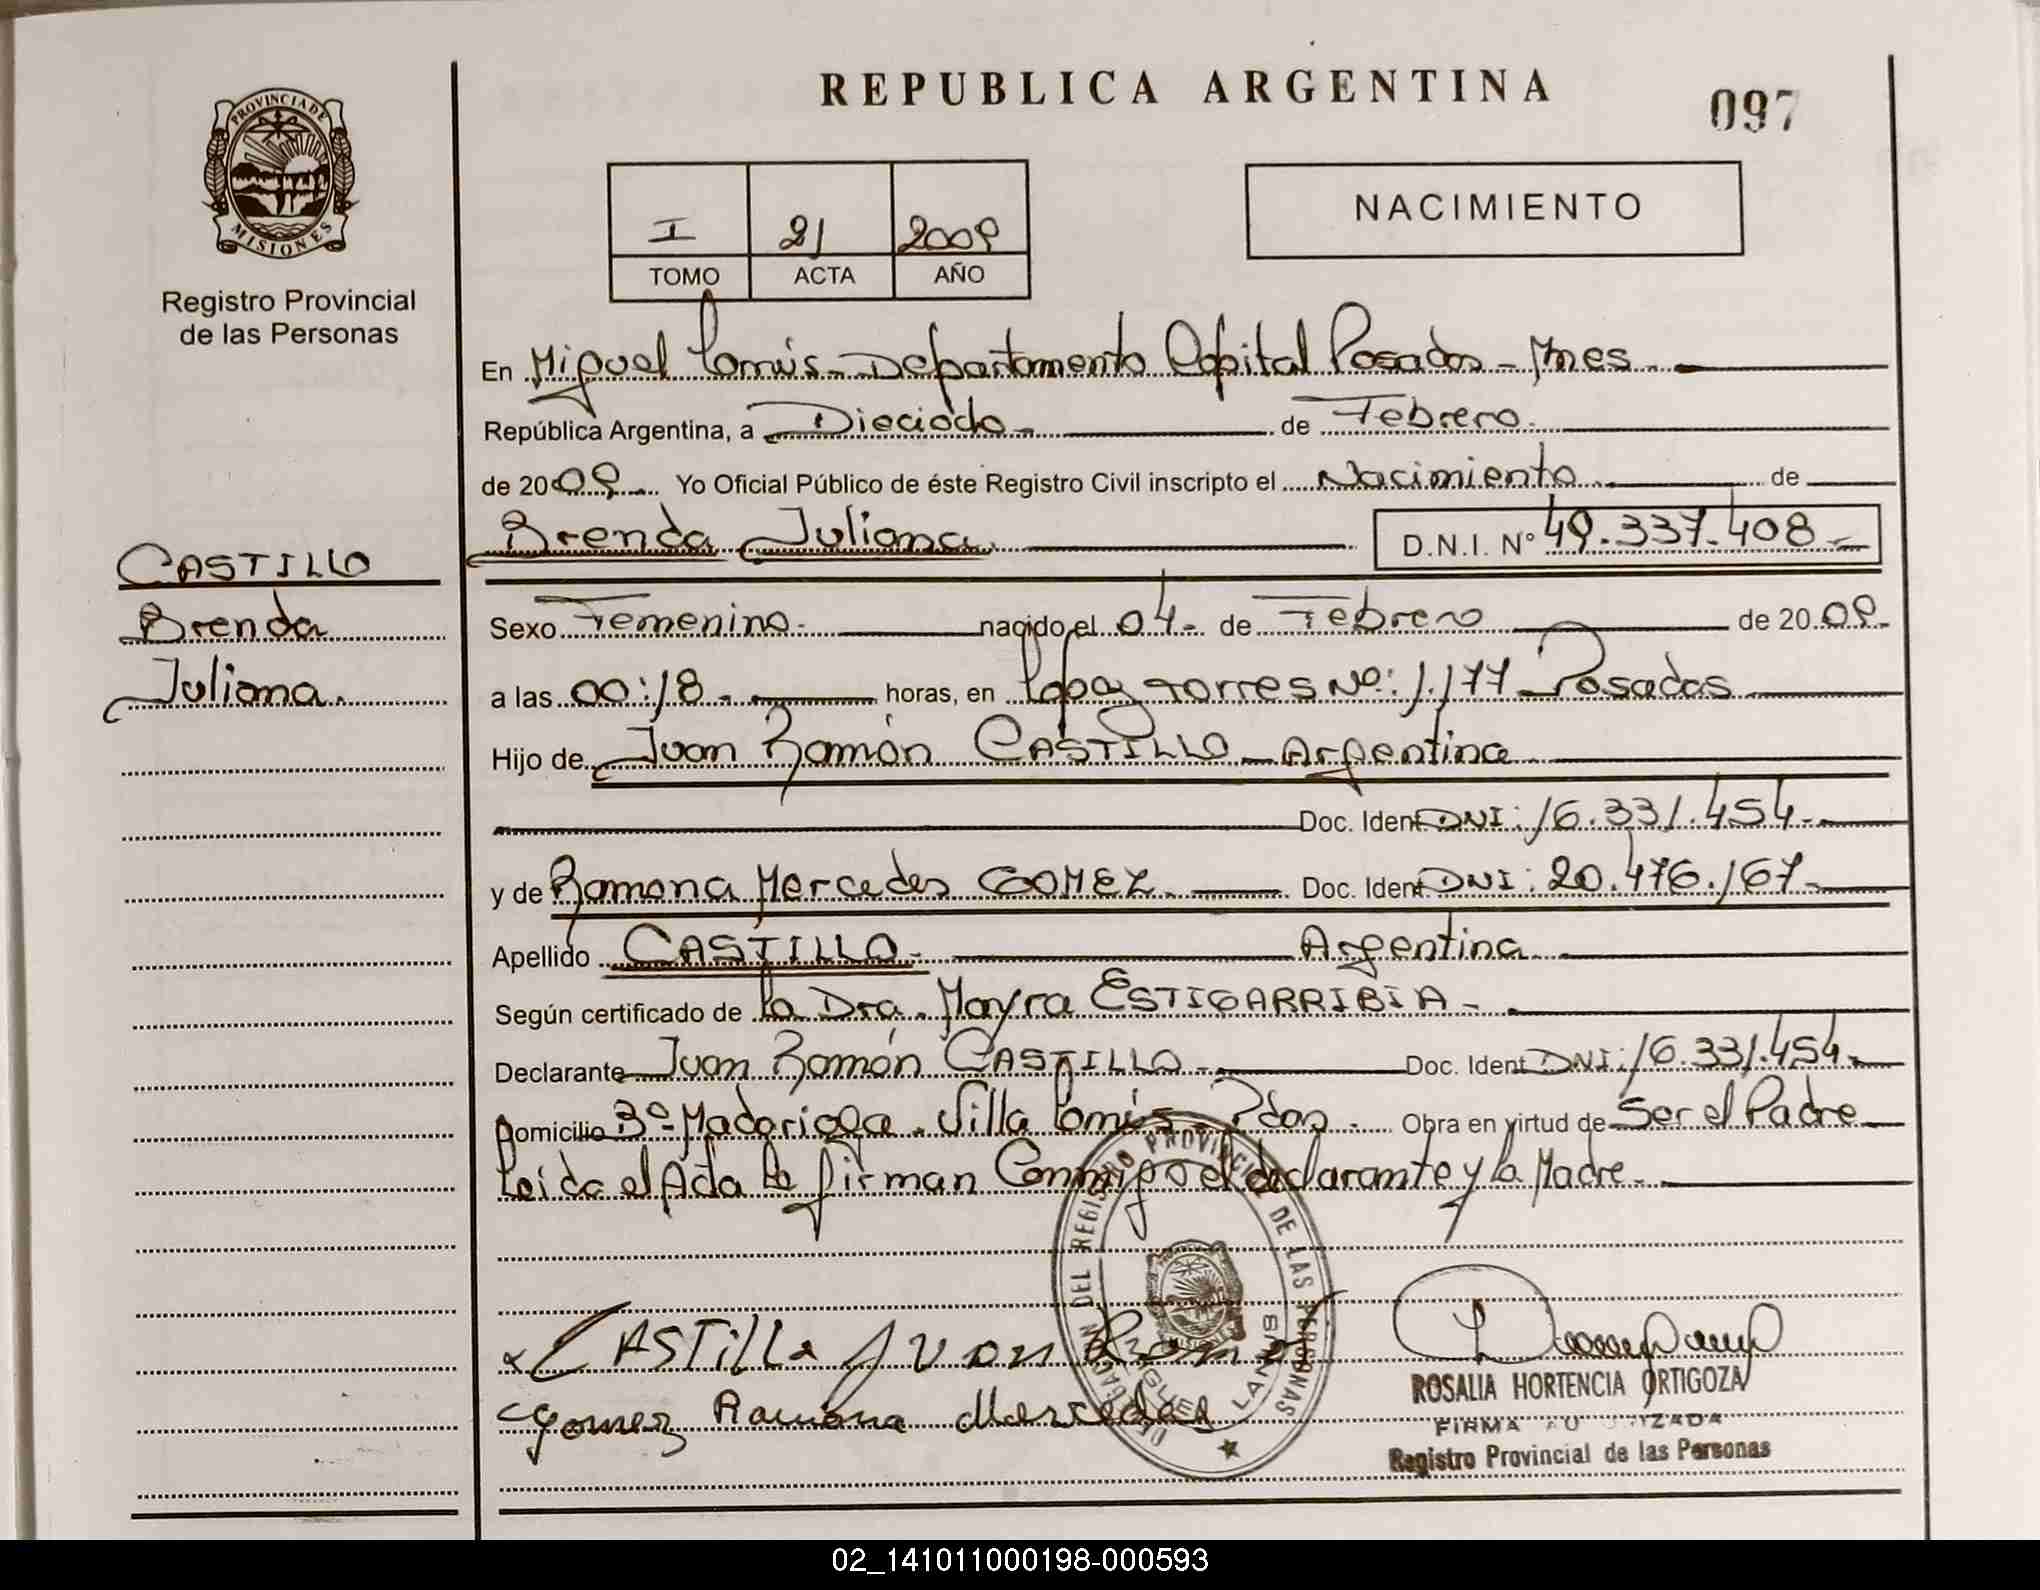 REPUBLICA ARGENTINA
097
PROVINCIA DE
MISIONES
Registro Provincial
de las Personas
I 21 2009
TOMO ACTA AÑO
NACIMIENTO
En Miguel Lanús - Departamento Capital Posadas - Mnes -
República Argentina, a Dieciocho - de Febrero.
de 2009. Yo Oficial Público de éste Registro Civil inscripto el Nacimiento. de
Brenda Juliana. D.N.I. Nº 49.337.408 -
CASTILLO
Brenda
Juliana.
Sexo Femenino. nacido el 04 - de Febrero de 2009 -
a las 00:18 - horas, en López Torres Nº: 1.177 - Posadas
Hijo de Juan Ramón CASTILLO - Argentina
Doc. Ident DNI: 16.331.454 -
y de Ramona Mercedes GOMEZ - Doc. Ident DNI: 20.476.167 -
Apellido CASTILLO - Argentina
Según certificado de la Dra. Mayra ESTIGARRIBIA -
Declarante Juan Ramón CASTILLO - Doc. Ident DNI: 16.331.454 -
Domicilio Bº Madariaga - Villa Lanús - Pdas - Obra en virtud de Ser el Padre
Leida el Acta la firman Conmigo el declarante y la Madre -
DELEGACION DEL REGISTRO PROVINCIAL DE LAS PERSONAS
MIGUEL LANUS
CASTILLO Juan Ramon
Gomez Ramona Mercedes
ROSALIA HORTENCIA ORTIGOZA
FIRMA AUTORIZADA
Registro Provincial de las Personas
02_141011000198-000593